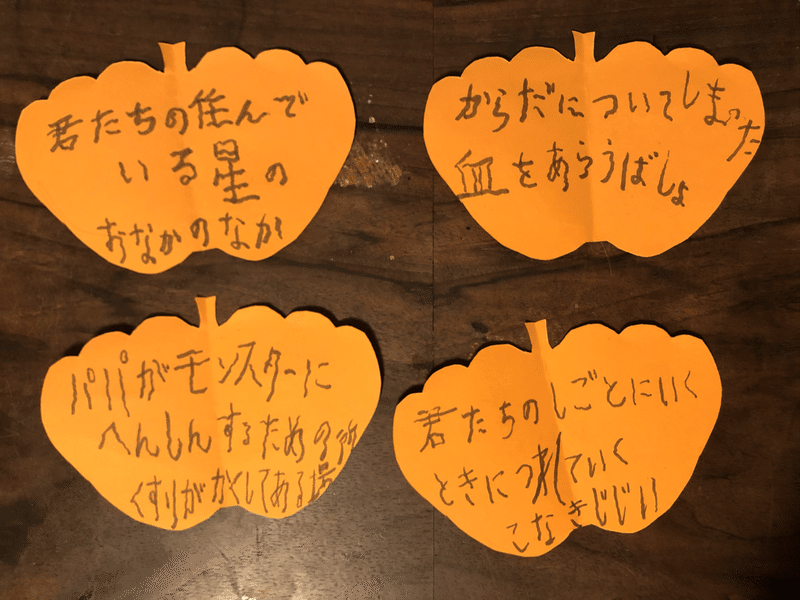 君たちの住んで
いる星の
おなかのなか
からだについてしまった
血をあらうばしょ
パパがモンスターに
へんしんするための
くすりがかくしてある場所
君たちのしごとにいく
ときにつれていく
こなきじじい